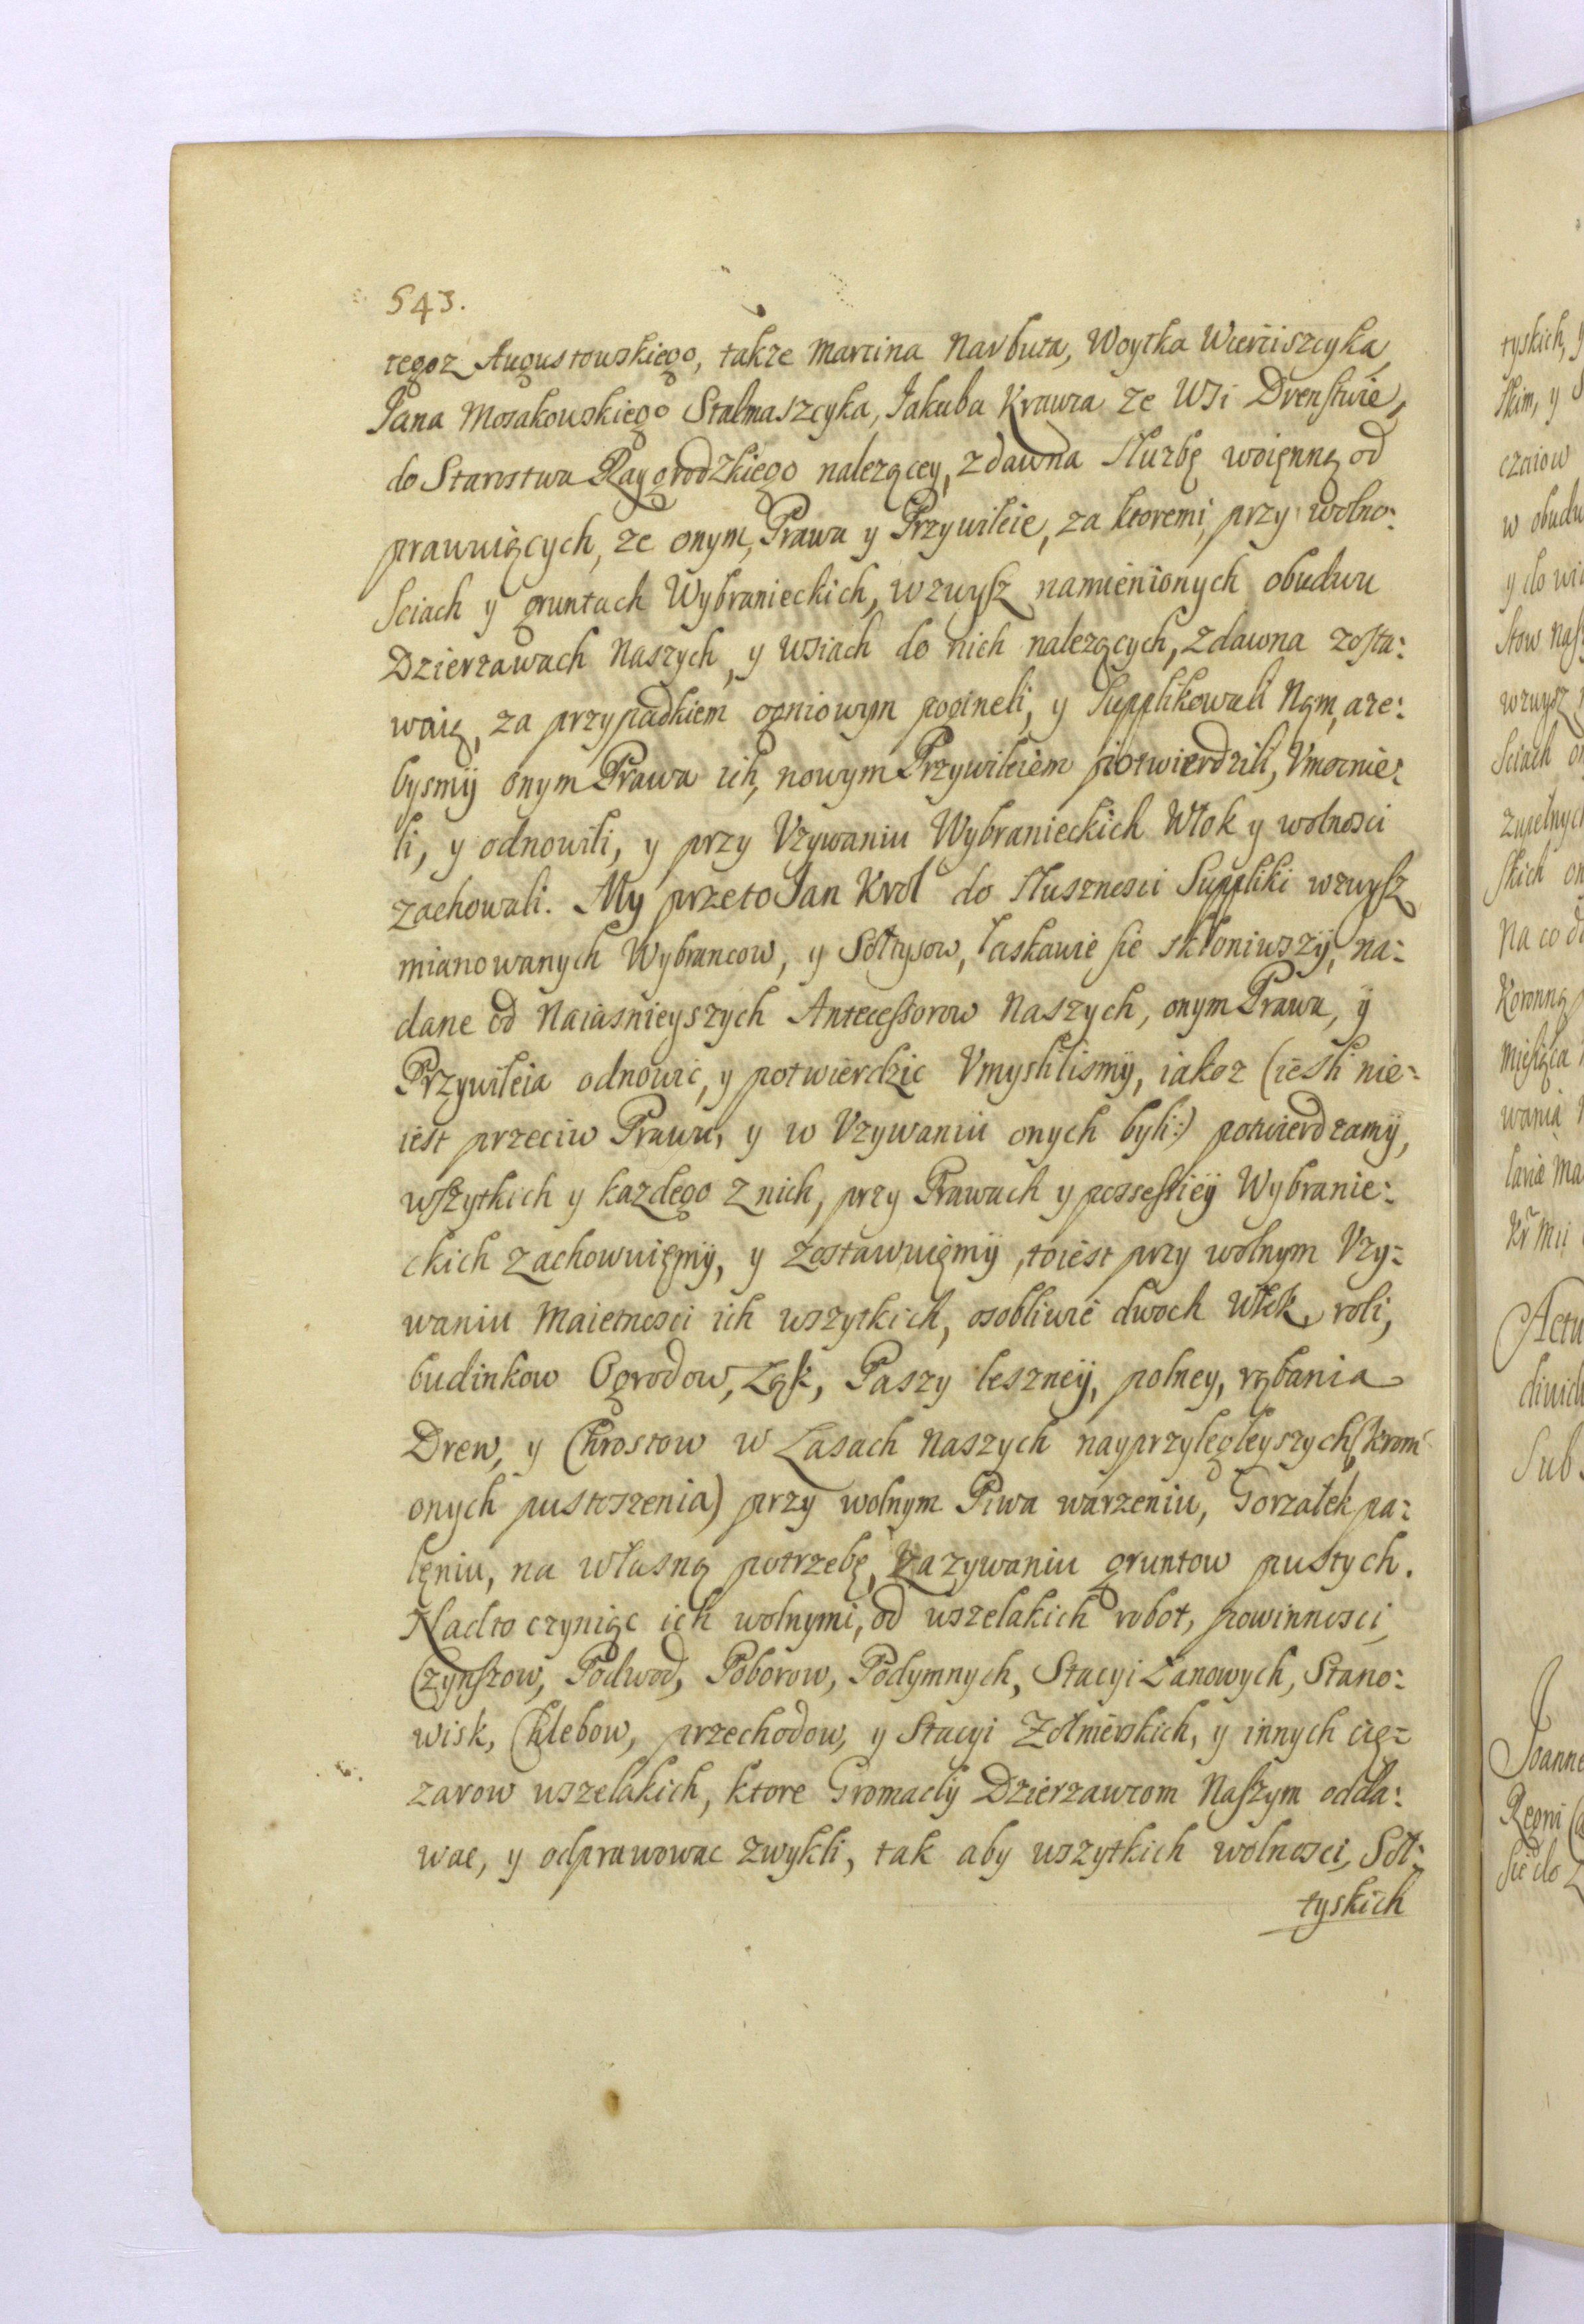 543.
tegoz Augustowskiego, takze Marcina Narbuta, Woytka Wierciszcyka,
Jana Mosakowskiego Stalmaszcyka, Jakuba Krawca ze Wsi Drenstwie,
do Starostwa Raygrodzkiego nalezącey, zdawna słuzbę woięnną od
prawuiących, ze onym, Prawa y Przywileie, za ktoremi, przy wolno:
sciach y gruntach Wybranieckich, wzwysz namienionych obudwu
Dzierzawach Naszych, y wsiach do nich nalezących, zdawna zosta:
waią, za przypadkiem ogniowym pogineli, y Supplikowali Nąm, aze:
bysmÿ onym Prawa ich, nowym Przywileiem potwierdzili, Vmocnie:
li, y odnowili, y przy Vzywaniu Wybranieckich Włok y wolnosci
zachowali. My przeto Jan Krol do słusznosci Suppliki wzwysz
mianowanych Wybrancow, y Sołtysow, łaskawie sie skłoniwszÿ, na:
dane od Naiasnieyszych Antecessorow Naszych, onym Prawa, ÿ
Przywileia odnowic, y potwierdzic Vmyslilismÿ, iakoz (iesli nie:
iest przeciw Prawu, y w Vzywaniu onych byli:) potwierdzamÿ,
wszytkich y kazdego z nich, przy Prawach y possessiey Wybranie:
ckich zachowuięmÿ, y zostawuięmÿ, toiest przy wolnym Vzy:
waniu Maietnosci ich wszytkich, osobliwie dwoch Włok, roli,
budinkow Ogrodow, Ląk, Paszy lesznеÿ, polney, rąbania
Drew, y Chrostow w Lasach Naszych nayprzylegleyszych (krom
onych pustoszenia) przy wolnym Piwa warzeniu, Gorzałek pa:
lęniu, na własną potrzebę, zazywaniu gruntow pustych.
Nadto czyniąc ich wolnymi, od wszelakich robot, powinnosci,
Czynszow, Podwod, Poborow, Podymnych, Stacyi Lanowych, Stano:
wisk, Chlebow, przechodow, y Stacyi Zołnierskich, y innych cię:
zarow wszelakich, ktore Gromadÿ Dzierzawcom Naszym odda:
wac, y odprawowac zwykli, tak aby wszytkich wolnosci, Soł:
tyskich